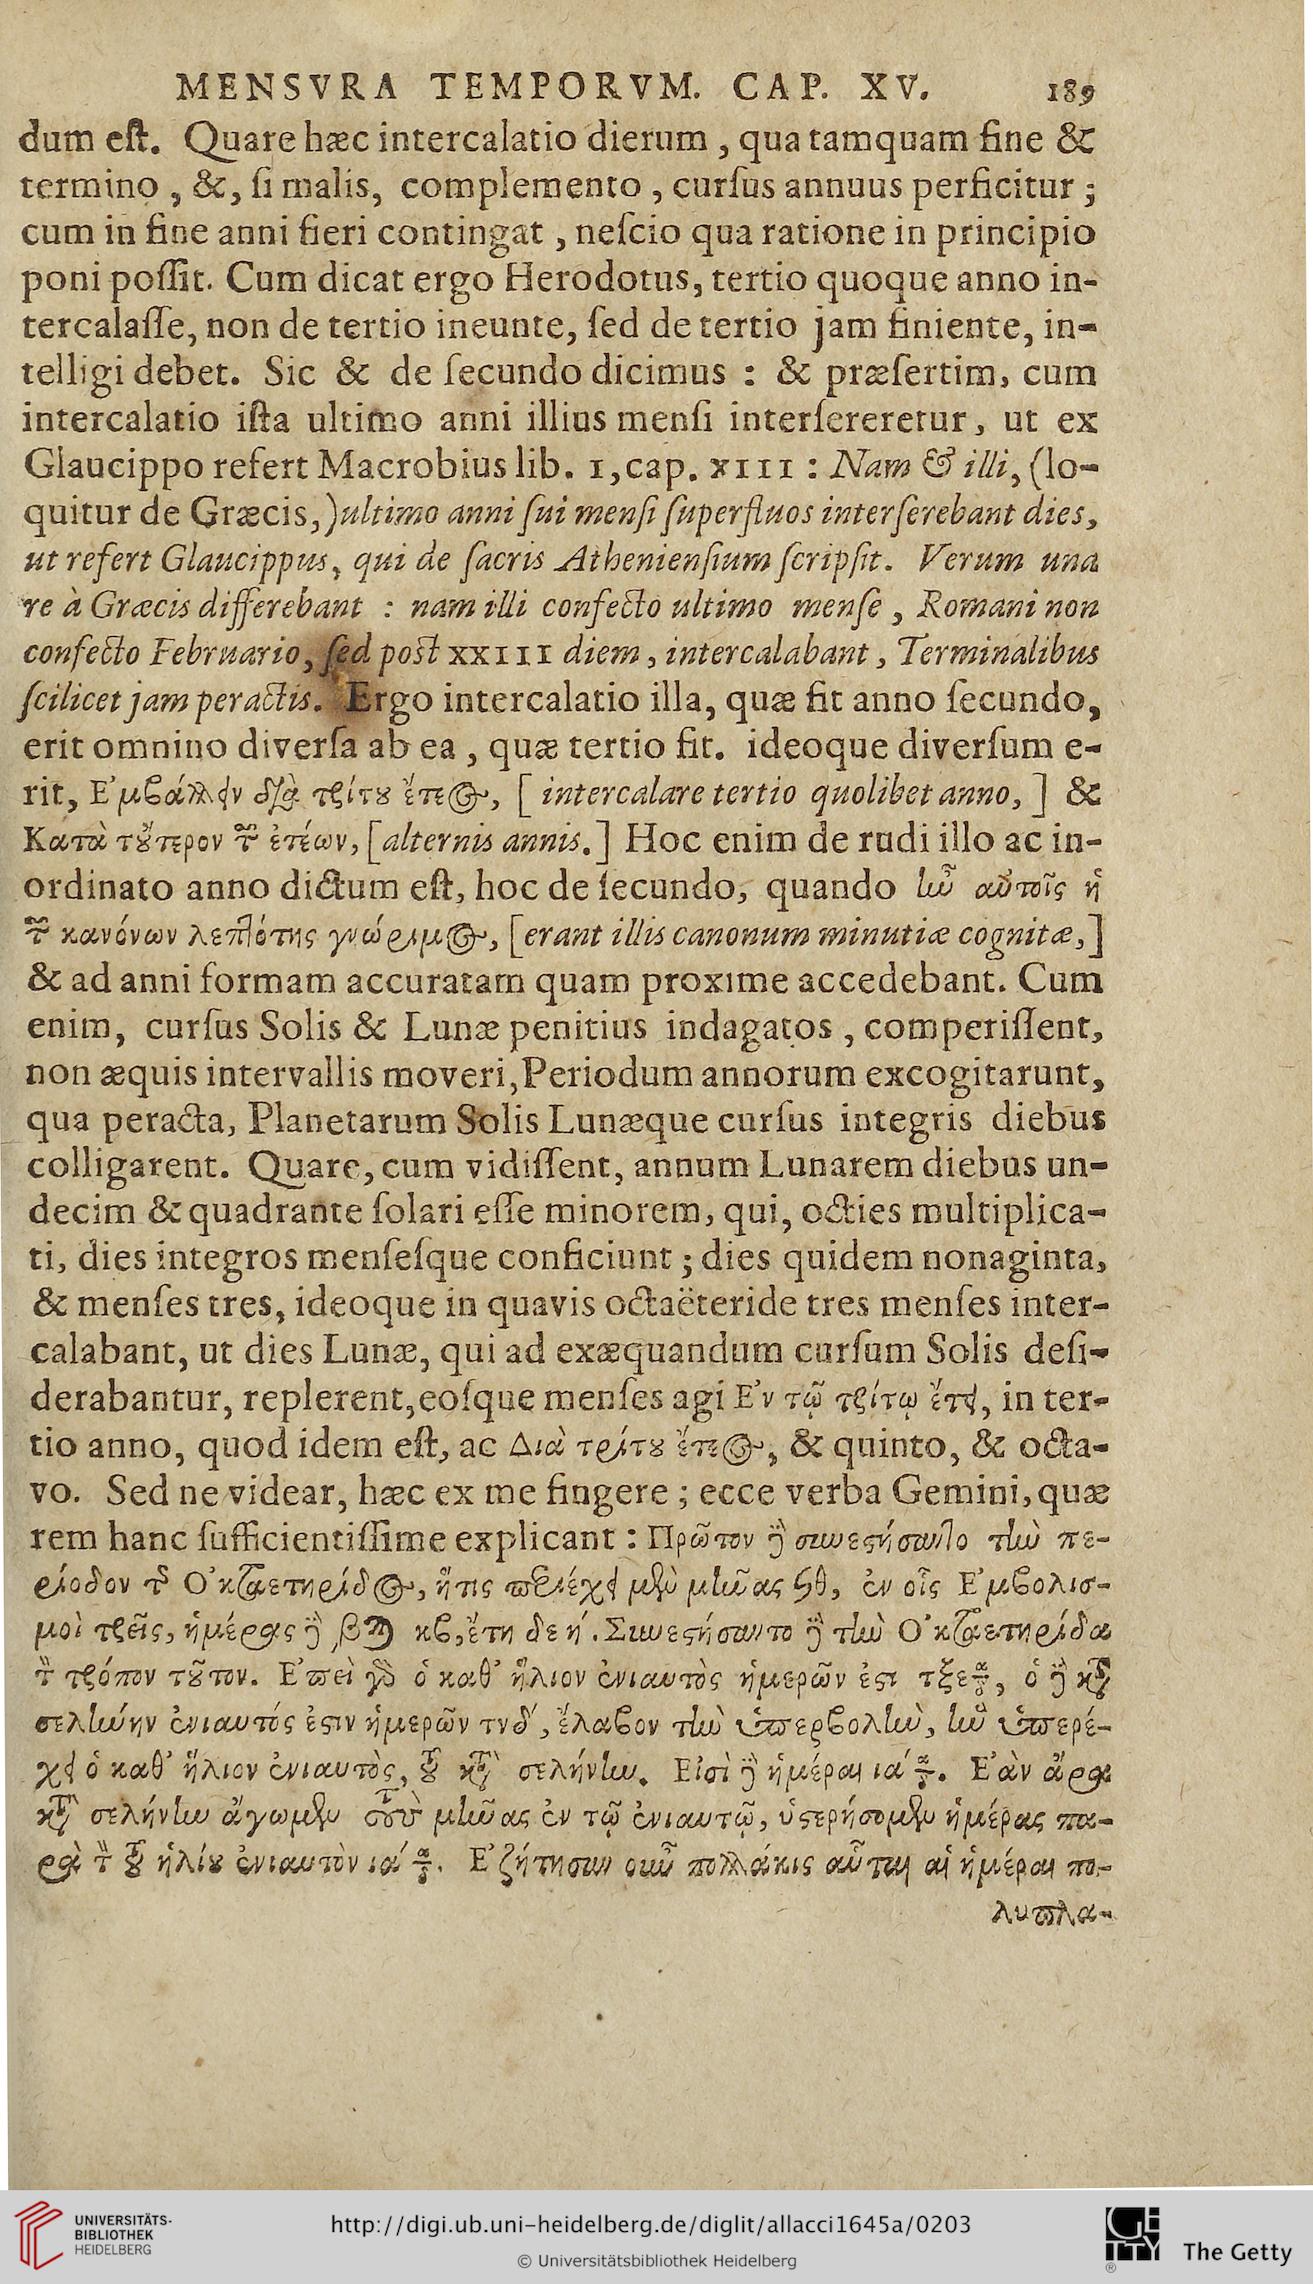 MENSVRA TEMPORVM. CAP. XV. 189
dum eſt. Quare hæc intercalatio dierum, qua tamquam fine &
termino, &, ſi malis, complemento, curſus annuus perficitur;
cum in fine anni fieri contingat, neſcio qua ratione in principio
poni poſſit. Cum dicat ergo Herodotus, tertio quoque anno in-
tercalaſſe, non de tertio ineunte, ſed de tertio jam finiente, in-
telligi debet. Sic & de ſecundo dicimus : & præſertim, cum
intercalatio iſta ultimo anni illius menſi interſereretur, ut ex
Glaucippo refert Macrobius lib. I, cap. XIII : Nam & illi, (lo-
quitur de Græcis,) ultimo anni ſui menſi ſuperfluos interſerebant dies,
ut refert Glaucippus, qui de ſacris Athenienſium ſcripſit. Verum una
re à Græcis differebant : nam illi confecto ultimo menſe, Romani non
confecto Februario, ſed poſt XXIII diem, intercalabant, Terminalibus
ſcilicet jam peractis. Ergo intercalatio illa, quæ fit anno ſecundo,
erit omnino diverſa ab ea, quæ tertio fit. ideoque diverſum e-
rit, Ε᾿μβάλλειν διὰ τρίτου ἔτεος, [ intercalare tertio quolibet anno, ] &
Κατὰ τοὔτερον τῶν ἐτέων, [alternis annis.] Hoc enim de rudi illo ac in-
ordinato anno dictum eſt, hoc de ſecundo, quando ἦν αὐτοῖς ἡ
τῶν κανόνων λεπτότης γνώριμος, [erant illis canonum minutiæ cognitæ,]
& ad anni formam accuratam quam proxime accedebant. Cum
enim, curſus Solis & Lunæ penitius indagatos, comperiſſent,
non æquis intervallis moveri, Periodum annorum excogitarunt,
qua peracta, Planetarum Solis Lunæque curſus integris diebus
colligarent. Quare, cum vidiſſent, annum Lunarem diebus un-
decim & quadrante ſolari eſſe minorem, qui, octies multiplica-
ti, dies integros menſeſque conficiunt; dies quidem nonaginta,
& menſes tres, ideoque in quavis octaëteride tres menſes inter-
calabant, ut dies Lunæ, qui ad exæquandum curſum Solis deſi-
derabantur, replerent, eoſque menſes agi Ε᾿ν τῷ τρίτῳ ἔτει, in ter-
tio anno, quod idem eſt, ac Διὰ τρίτου ἔτεος, & quinto, & octa-
vo. Sed ne videar, hæc ex me fingere; ecce verba Gemini, quæ
rem hanc ſufficientiſſime explicant : Πρῶτον δὲ συνεστήσαντο τὴν πε-
ρίοδον τῆς Ο᾿κταετηρίδος, ἥτις περιέχει μὲν μῆνας ϟθ, ἐν οἷς Ε᾿μβολισ-
μοὶ τρεῖς, ἡμέρας δὲ ͵βϡ κβ, ἔτη δε ή. Συνεστήσαντο δὲ τὴν Ο᾿κταετηρίδα
τὸν τρόπον τοῦτον. Ε᾿πεὶ γὰρ ὁ καθ᾿ ἥλιον ἐνιαυτὸς ἡμερῶν ἐστι τξε δ, ὁ δὲ κατὰ
σελήνην ἐνιαυτός ἐστιν ἡμερῶν τνδ́, ἔλαβον τὴν ὑπερβολὴν, ἣν ὑπερέ-
χει ὁ καθ᾿ ἥλιον ἐνιαυτὸς, τοῦ κατὰ σελήνην. Εἰσὶ δὲ ἡμέραι ιά δ. Ε᾿ὰν ἄρα
κατὰ σελήνην ἄγωμεν τοὺς μῆνας ἐν τῷ ἐνιαυτῷ, ὑστερήσομεν ἡμέρας πα-
ρὰ τὸν τοῦ ἡλίου ἐνιαυτὸν ιά δ. Ε᾿ζήτησαν οὖν πολλάκις αὗται αἱ ἡμέραι πο-
λυπλα-
UNIVERSITÄTS-
BIBLIOTHEK
HEIDELBERG
http://digi.ub.uni-heidelberg.de/diglit/allacci1645a/0203
© Universitätsbibliothek Heidelberg
GETTY
The Getty